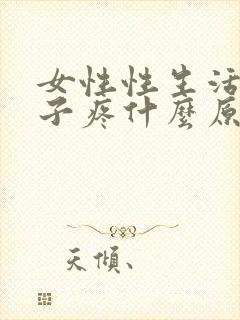 女性性生活
子疼什麼原
天傾、